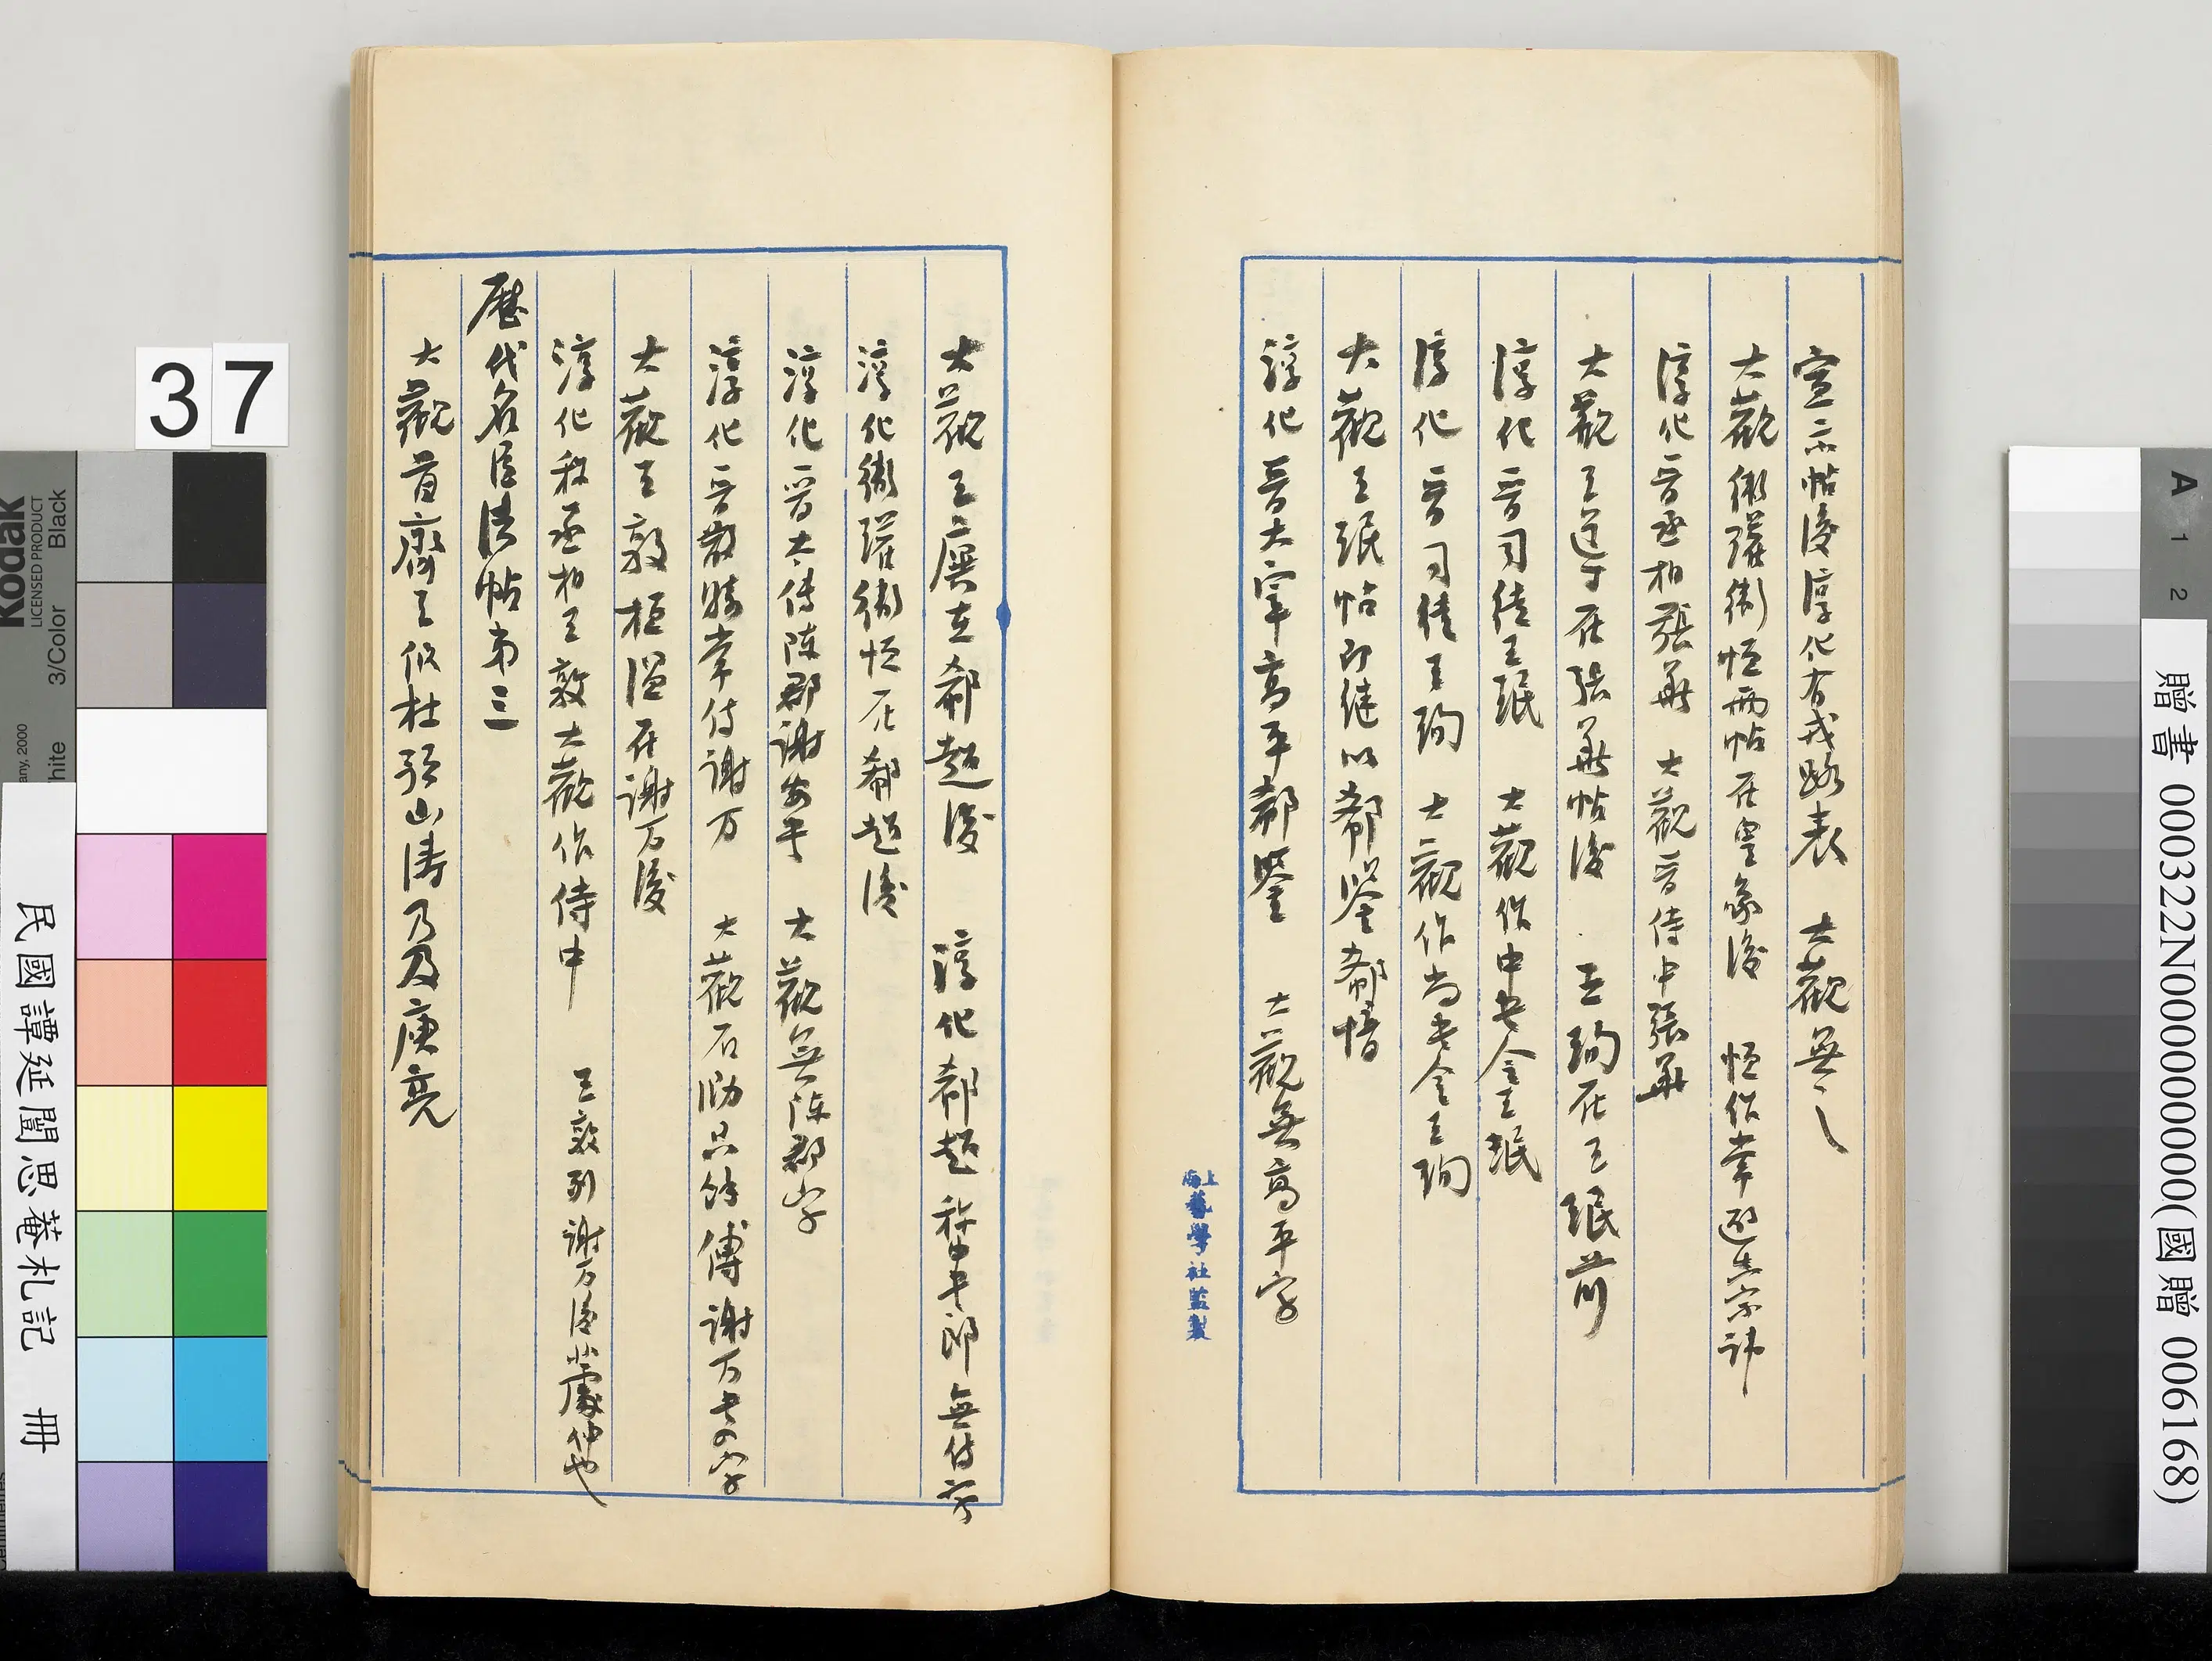 宣示帖後淳化有戎路表　大觀無之
大觀衛瓘衛恒兩帖在皇象後　恒作常避真宗諱
淳化晉丞相張華　大觀晉侍中張華
大觀王導在張華帖後　王珣在王珉前
淳化晉司徒王珉　大觀作中書令王珉
淳化晉司徒王珣　大觀作尚書令王珣
大觀王珉帖即繼以郗鑒郗愔
淳化晉太宰高平郗鑒　大觀無高平字
上海藝學社監製
大觀王廙在郗超後　淳化郗超稱中書郎無侍字
淳化衛瓘衛恒在郗超後
淳化晉太傅陳郡謝安　大觀無陳郡字
淳化晉散騎常侍謝万　大觀石泐只餘傅謝万書四字
大觀王敦桓溫在謝万後
淳化稱丞相王敦大觀作侍中　王敦列謝万後蓋處仲也
歷代名臣法帖第三
大觀首齊王攸杜預山濤乃及庾亮
37
Kodak
LICENSED PRODUCT
Black
3/Color
White
any, 2000
Centimetres
民國譚延闓思菴札記　冊
A 1 2
贈書 000322N000000000000(國贈 006168)